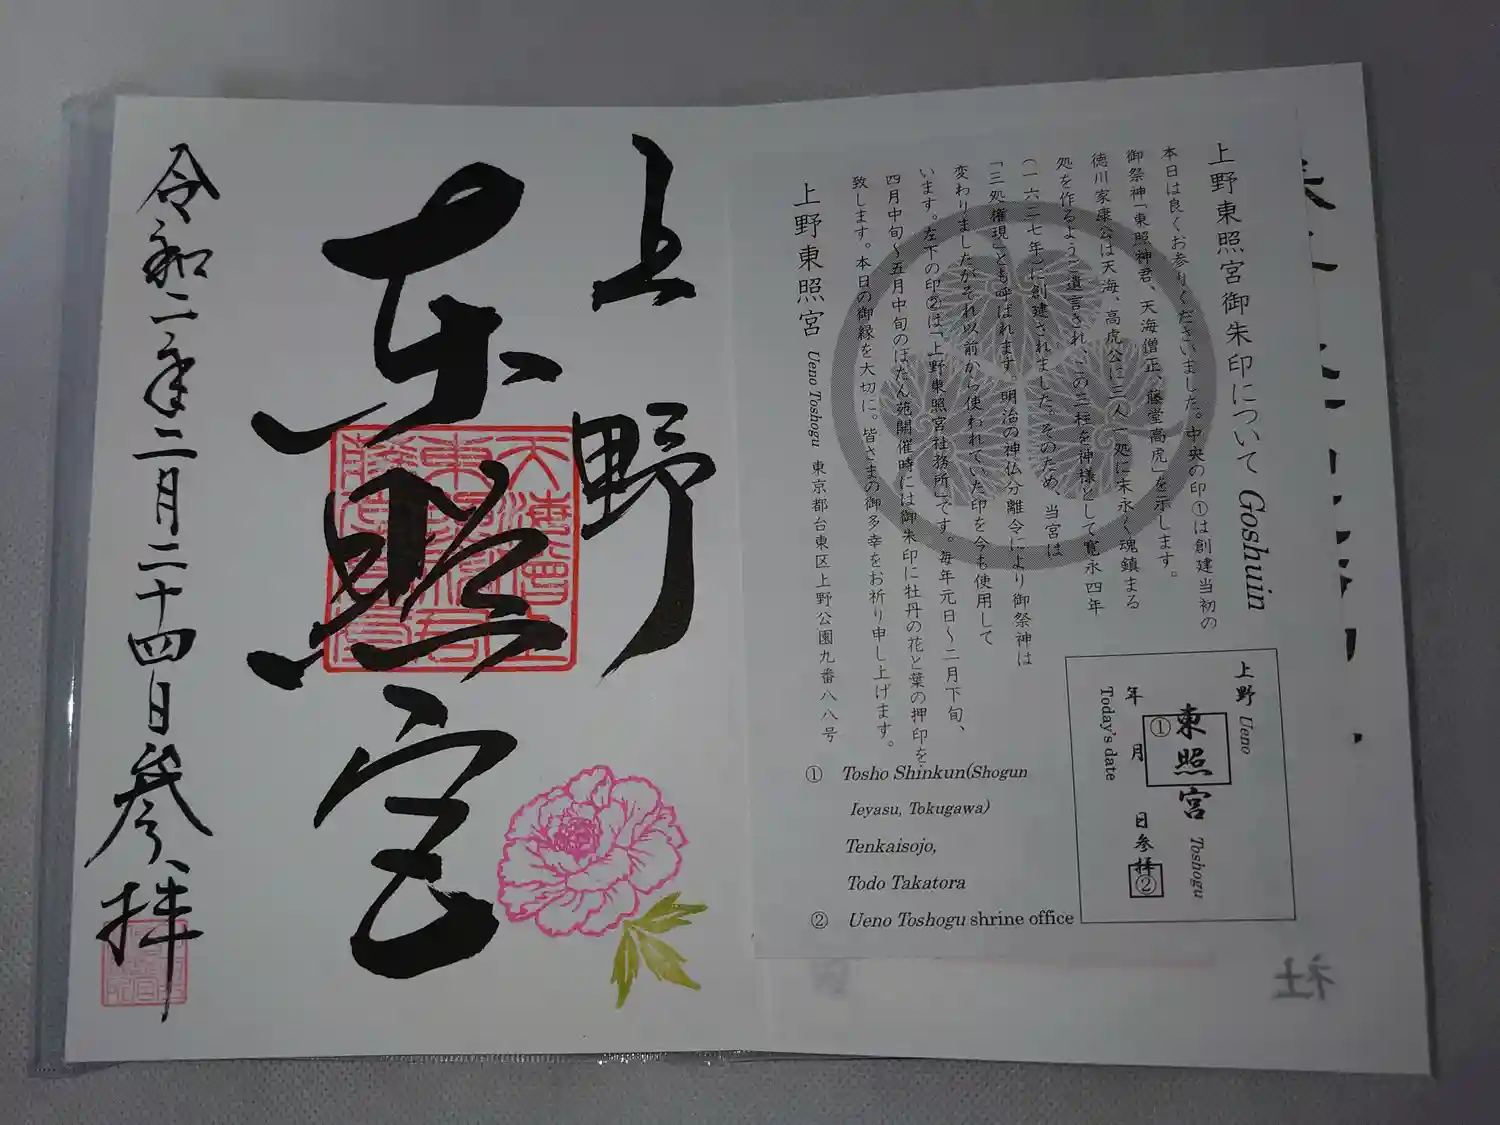 上野
東照宮
令和二年二月二十四日参拝
上野東照宮御朱印について Goshuin
本日は良くお参りくださいました。中央の印①は創建当初の
御祭神「東照神君、天海僧正、藤堂高虎」を示します。
徳川家康公は天海、高虎公に三人一処に末永く魂鎮まる
処を作るようご遺言され、この三柱を神様として寛永四年
(一六二七年)に創建されました。そのため、当宮は
「三処権現」とも呼ばれます。明治の神仏分離令により御祭神は
変わりましたがそれ以前から使われていた印を今も使用して
います。左下の印②は「上野東照宮社務所」です。毎年元日〜二月下旬、
四月中旬〜五月中旬のぼたん苑開催時には御朱印に牡丹の花と葉の押印を
致します。本日の御縁を大切に。皆さまの御多幸をお祈り申し上げます。
上野東照宮 Ueno Toshogu 東京都台東区上野公園九番八八号
上野 Ueno
①東照宮 Toshogu
年 月 日参拝②
Today's date
① Tosho Shinkun(Shogun
Ieyasu, Tokugawa)
Tenkaisojo,
Todo Takatora
② Ueno Toshogu shrine office